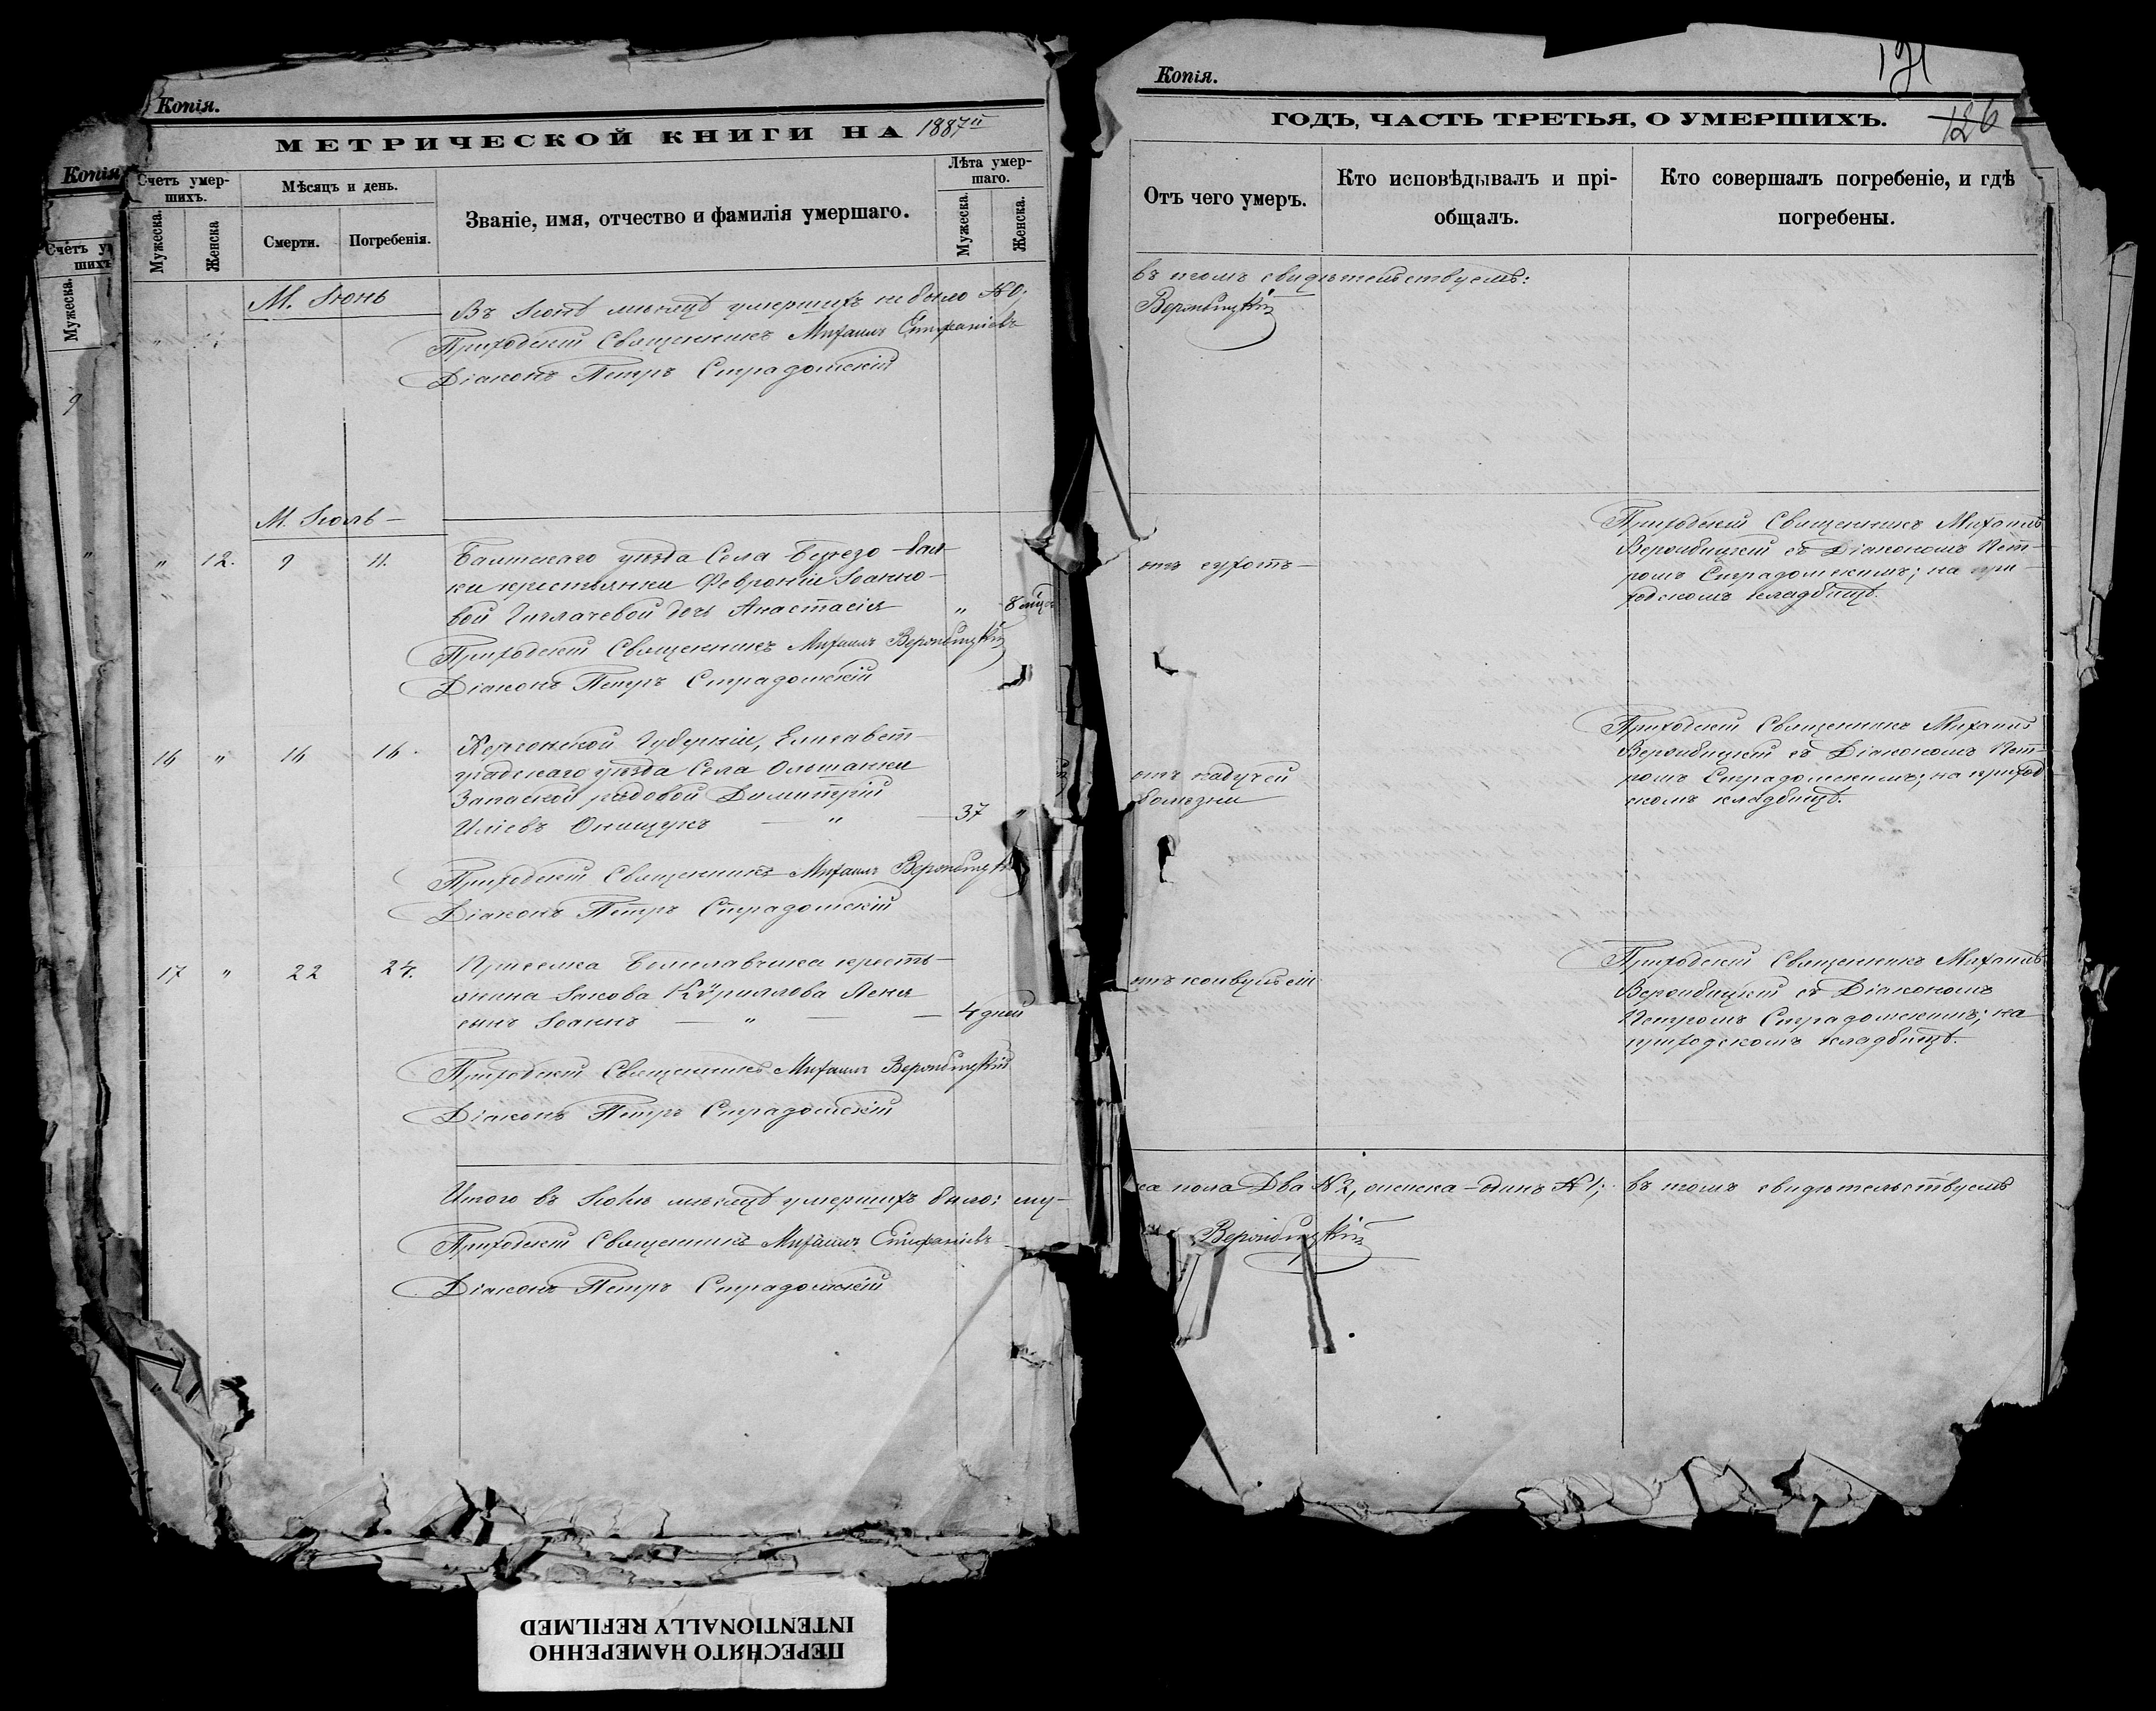 Копія.
МЕТРИЧЕСКОЙ КНИГИ НА 1887й
Счетъ умер-
шихъ.
Мѣсяцъ и день.
Званіе, имя, отчество и фамилія умершаго.
Лѣта умер-
шаго.
Мужеска.
Женска
Смерти.
Погребенія.
Мужеска.
Женска.
М. Іюнь
Въ Іюнѣ мѣсяцѣ умершихъ не было №0;
Приходскій Священникъ Михаилъ Епифаніевъ
Діаконъ Петръ Страдомскій
М. Іюль —
" 12. 9 11. Балтскаго уѣзда Села Березо-бал-
ки крестьянки Февроніи Іоанно-
вой дочь Анастасія " 8 мѣц.
Приходскій Священникъ Михаилъ Вероибицкій
Діаконъ Петръ Страдомскій
16 " 16 16. Херсонской Губерніи, Елисавет-
градскаго уѣзда Села Ольшанки
Запасной рядовой Димитрій
Иліевъ Онищукъ — " — 37 "
Приходскій Священникъ Михаилъ Вероибицкій
Діаконъ Петръ Страдомскій
17 " 22 24. Приселка Болеславчика кресть-
янина Іакова Кѵриллова Лена
сынъ Іоаннъ — " — — 4 дней
Приходскій Священникъ Михаилъ Вероибицкій
Діаконъ Петръ Страдомскій
Итого въ Іюлѣ мѣсяцѣ умершихъ было: му-
Приходскій Священникъ Михаилъ Епифаніевъ
Діаконъ Петръ Страдомскій
Копія
Счетъ у
шихъ
Мужеска.
9
"
Копія.
191
ГОДЪ, ЧАСТЬ ТРЕТЬЯ, О УМЕРШИХЪ.
126
Отъ чего умеръ.
Кто исповѣдывалъ и прі-
общалъ.
Кто совершалъ погребеніе, и гдѣ
погребены.
въ томъ свидѣтельствуемъ:
Вероибицкій
отъ сухотъ —
Приходскій Священникъ Михаилъ
Вероибицкій съ Діакономъ Пет-
ромъ Страдомскимъ; на при-
ходскомъ кладбищѣ.
отъ падучей
болѣзни
Приходскій Священникъ Михаилъ
Вероибицкій съ Діакономъ Пет-
ромъ Страдомскимъ; на приход
скомъ кладбищѣ.
отъ конвульсіи
Приходскій Священникъ Михаилъ
Вероибицкій съ Діакономъ
Петромъ Страдомскимъ; на
приходскомъ кладбищѣ.
ска пола Два №2, женска — одинъ №1; въ томъ свидѣтельствуемъ
Вероибицкій
ПЕРЕСНЯТО НАМЕРЕННО
INTENTIONALLY REFILMED